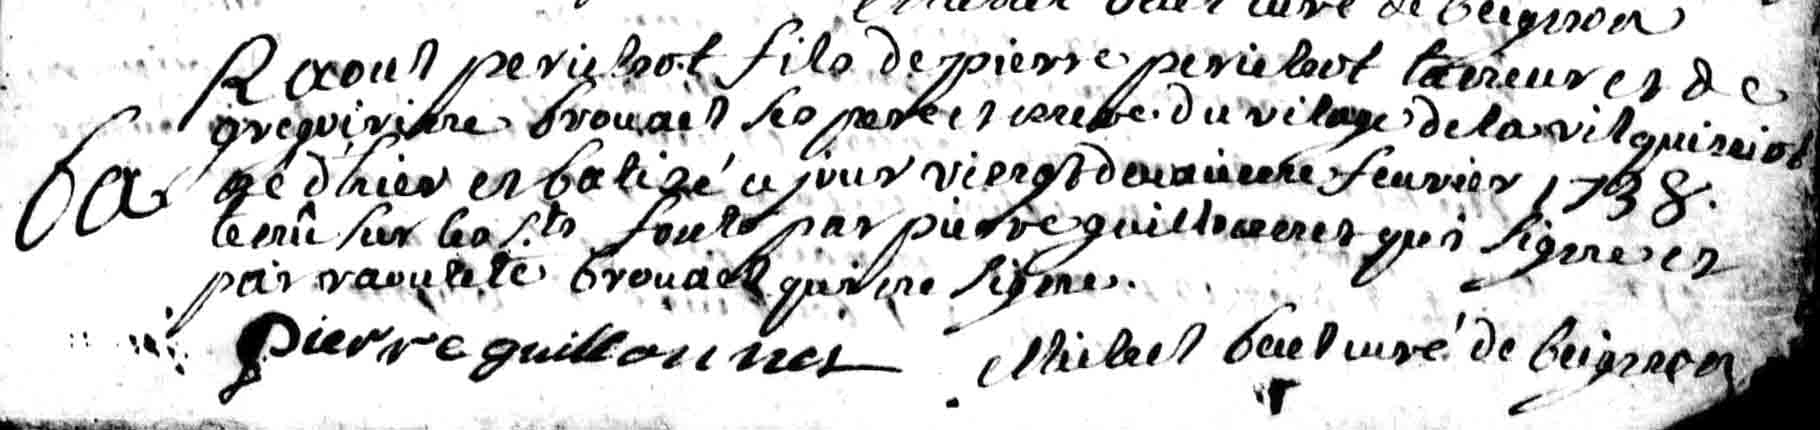 Michel baul curé de beignon
Raoul perichot fils de pierre perichot taneur et de
grequirinne brouael ses pere et mere du vilage de la vilquiniot
ba agé d'hier et batizé ce jour vingt deuxiesme feuvrier 1738.
tenû sur les sts fonts par pierre guillonnet qui signe et
par raoulete brouael qui ne signe.
Pierre guillonnet Michel baul curé de beignon